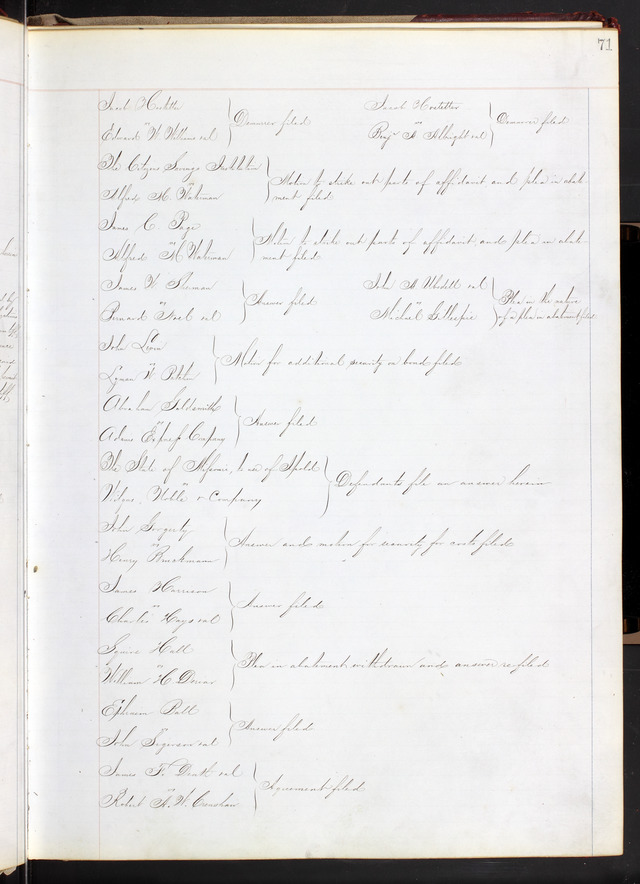 71
Jacob
vs
Edward W
Demurrer filed
Jacob Hostetter
vs
Benj A Albright et al
Demurrer filed
The Citizens Savings Institution
vs
Alfred M. Waterman
Motion to strike out parts of affidavit and plea in abate-
ment filed
James C. Page
vs
Alfred M Waterman
Motion to strike out parts of affidavit and plea in abate-
ment filed
James W Sherman
vs
Bernard Noel et al
Answer filed
John A et al
vs
Michael Gillespie
Plea in the nature
of a plea in abatement filed
John Levin
vs
Lyman W
Motion for additional security on bond filed
Abraham Goldsmith
vs
Adams Express Company
Answer filed
The State of Missouri, to use of
vs
Noble & Company
Defendants file an answer herein
John
vs
Henry
Answer and motion for security for costs filed
James Harrison
vs
Charles Hays et al
Answer filed
Squire Hall
vs
William H
Plea in abatement withdrawn and answer re-filed
Ephraim Ball
vs
John et al
Answer filed
James F. et al
vs
Robert A. W. Crenshaw
Agreement filed